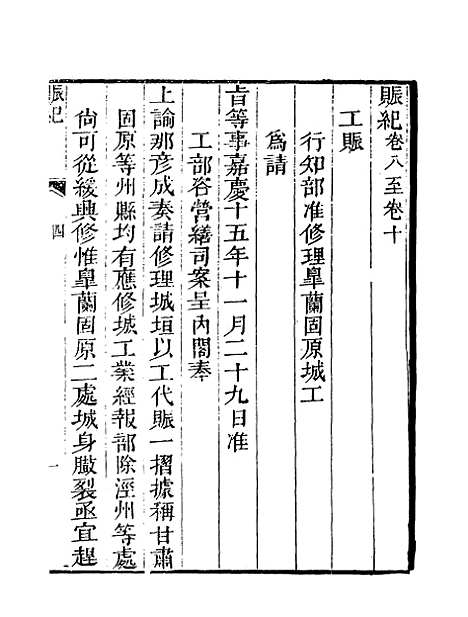 賑紀卷八至卷十
工賑
行知部准修理臯蘭固原城工
爲請
旨等事嘉慶十五年十一月二十九日准
工部咨營繕司案呈內閣奉
上諭那彥成奏請修理城垣以工代賑一摺據稱甘肅
固原等州縣均有應修城工業經報部除涇州等處
尙可從緩興修惟臯蘭固原二處城身臌裂亟宜趕
賑紀
四
一